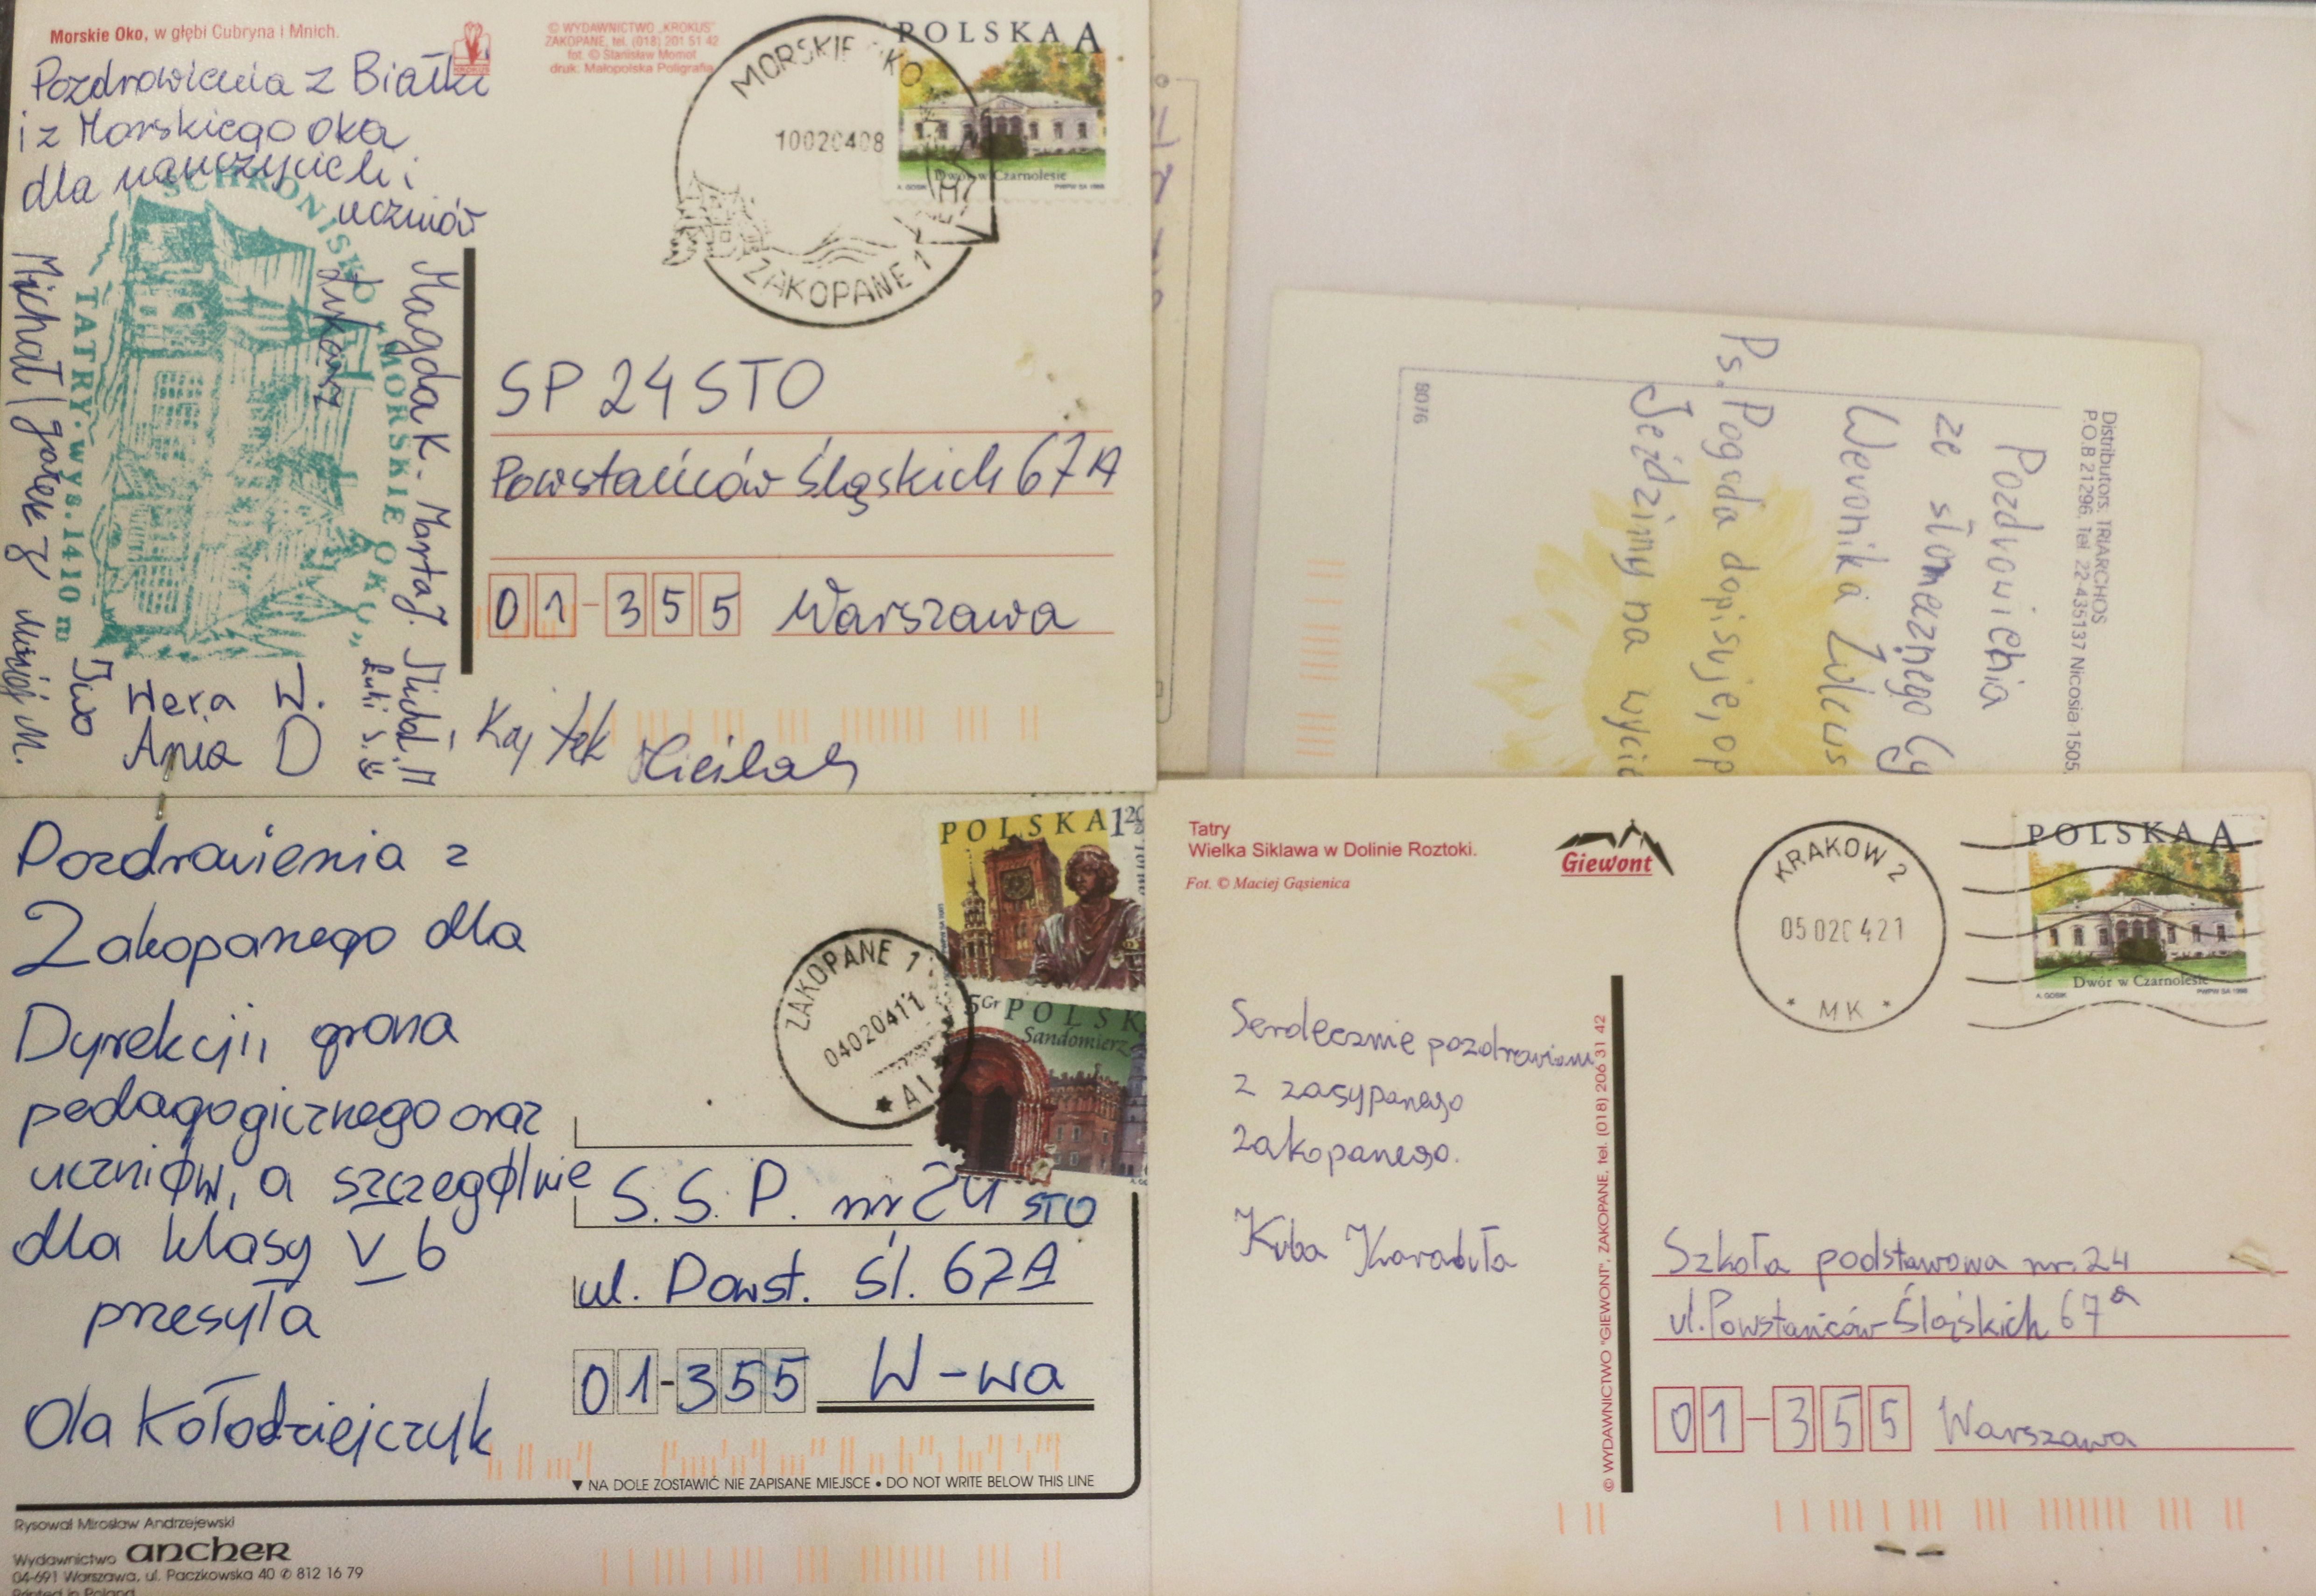 Morskie Oko, w głębi Cubryna i Mnich.
© WYDAWNICTWO „KROKUS"
ZAKOPANE, tel. (018) 201 51 42
fot. © Stanisław Momot
druk: Małopolska Poligrafia
POLSKA A
Dwór w Czarnolesie
MORSKIE OKO
10020408
ZAKOPANE 1
Pozdrowienia z Białki
i z Morskiego oka
dla nauczycieli i
uczniów
SCHRONISKO „MORSKIE OKO"
TATRY. wys. 1410 m
Łukasz
Magda K. Marta J. Michał M
Michał
Iwo
Wera W.
Ania D
Luki S.
Kajtek
SP 24 STO
Powstańców Śląskich 67A
01-355 Warszawa
8076
Distributors: TRIARCHOS
P.O.B 21296, Tel. 22-435137 Nicosia 1505,
Pozdrowienia
ze słonecznego Cy
Weronika
Ps. Pogoda dopisuje, op
Jeździmy na wyci
Pozdrowienia z
Zakopanego dla
Dyrekcji, grona
pedagogicznego oraz
uczniów, a szczególnie
dla klasy V b
przesyła
Ola Kołodziejczyk
POLSKA 1 20
5 Gr POLSK
Sandomierz
ZAKOPANE 1
040204 11
A1
S.S.P. nr 24 STO
ul. Powst. Śl. 67A
01-355 W-wa
▼ NA DOLE ZOSTAWIĆ NIE ZAPISANE MIEJSCE • DO NOT WRITE BELOW THIS LINE
Rysował Mirosław Andrzejewski
Wydawnictwo ancher
04-691 Warszawa, ul. Paczkowska 40 ✆ 812 16 79
Printed in Poland
Tatry
Wielka Siklawa w Dolinie Roztoki.
Fot. © Maciej Gąsienica
Giewont
KRAKOW 2
05020421
* MK *
POLSKA A
Dwór w Czarnolesie
Serdecznie pozdrawiam
z zasypanego
Zakopanego.
Kuba
© WYDAWNICTWO "GIEWONT", ZAKOPANE, tel. (018) 206 31 42
Szkoła podstawowa nr. 24
ul. Powstańców Śląskich 67a
01-355 Warszawa